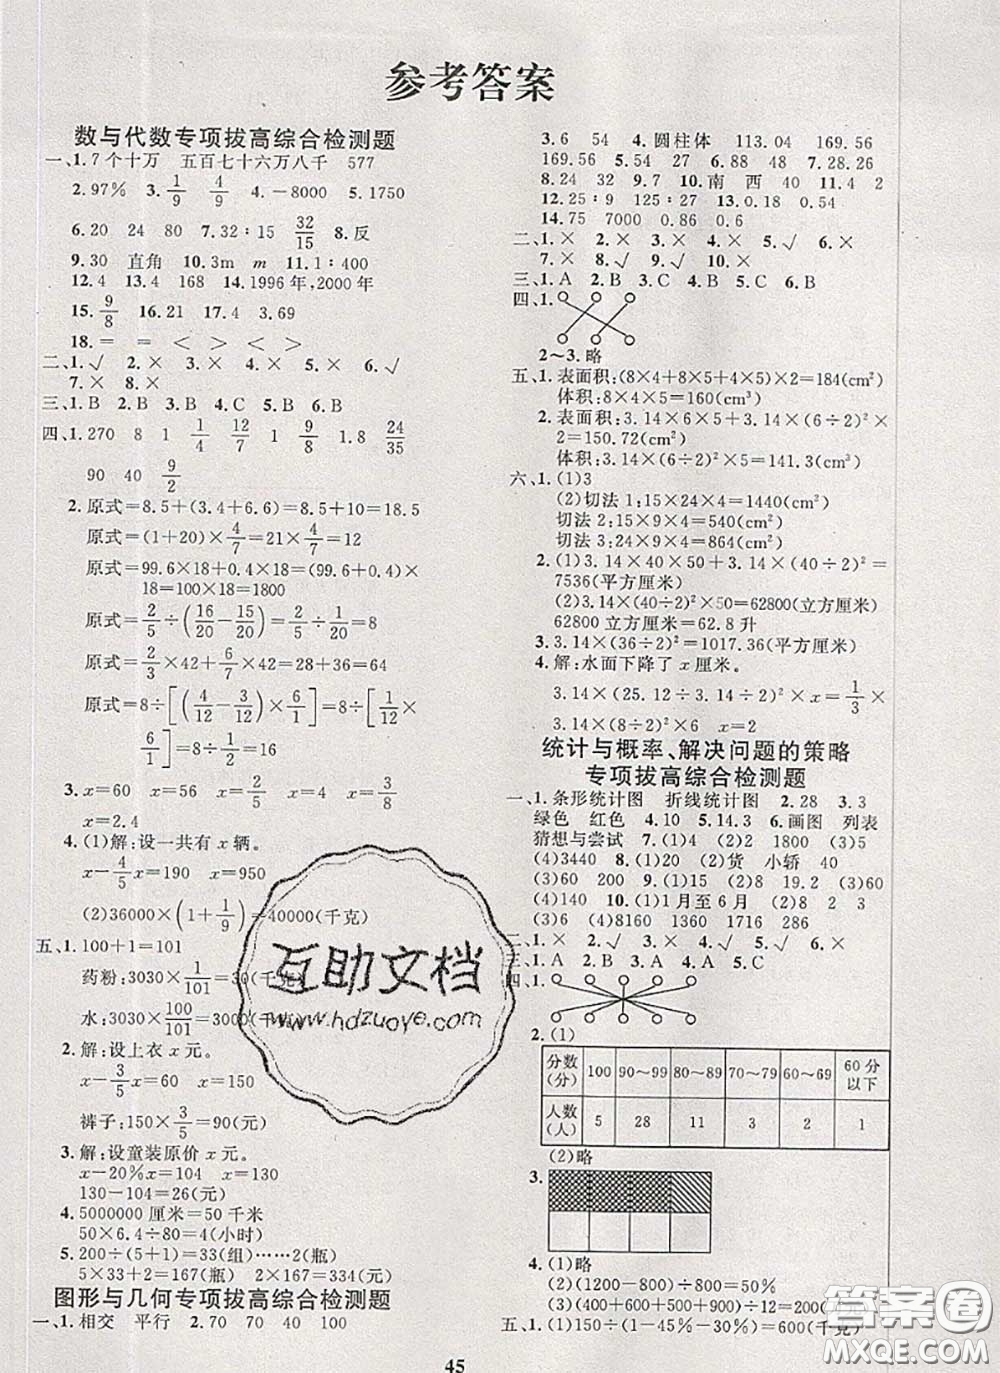 参考答案
数与代数专项拔高综合检测题
一、1.7个十万 五百七十六万八千 577
2.97% 3.1/9 4/9 4.-8000 5.1750
6.20 24 80 7.32∶15 32/15 8.反
9.30 直角 10.3m m 11.1∶400
12.4 13.4 168 14.1996年,2000年
15.9/8 16.21 17.4 3.69
18.= = < > < >
二、1.√ 2.× 3.× 4.× 5.× 6.√
7.× 8.×
三、1.B 2.B 3.B 4.C 5.B 6.B
四、1.270 8 1 1/4 12/7 1 9/8 1.8 24/35
90 40 9/2
2.原式=8.5+(3.4+6.6)=8.5+10=18.5
原式=(1+20)×4/7=21×4/7=12
原式=99.6×18+0.4×18=(99.6+0.4)×
18=100×18=1800
原式=2/5÷(16/20-15/20)=2/5÷1/20=8
原式=2/3×42+6/7×42=28+36=64
原式=8÷[(4/12-3/12)×6/1]=8÷[1/12×
6/1]=8÷1/2=16
3.x=60 x=56 x=2/5 x=8
x=2.4
4.(1)解:设一共有x辆。
x-4/5x=190 x=950
(2)36000×(1+1/9)=40000(千克)
五、1.100+1=101
药粉:3030×1/101=30(千克)
水:3030×100/101=3000(千克)
2.解:设上衣x元。
x-3/5x=60 x=150
裤子:150×3/5=90(元)
3.解:设童装原价x元。
x-20%x=104 x=130
130-104=26(元)
4.5000000厘米=50千米
50×6.4÷80=4(小时)
5.200÷(5+1)=33(组)……2(瓶)
5×33+2=167(瓶) 2×167=334(元)
图形与几何专项拔高综合检测题
一、1.相交 平行 2.70 70 40 100
3.6 54 4.圆柱体 113.04 169.56
169.56 5.54 27 6.88 48 7.28.26
8.24 32 9.7 10.南 西 40 11.4 2
12.25∶9 125∶27 13.0.18 0.54
14.75 7000 0.86 0.6
二、1.× 2.× 3.× 4.× 5.√ 6.×
7.× 8.√ 9.√ 10.×
三、1.A 2.B 3.C 4.C 5.C 6.B
四、1.
2～3.略
五、1.表面积:(8×4+8×5+4×5)×2=184(cm²)
体积:8×4×5=160(cm³)
2.表面积:3.14×6×5+3.14×(6÷2)²×
2=150.72(cm²)
体积:3.14×(6÷2)²×5=141.3(cm³)
六、1.(1)3
(2)切法1:15×24×4=1440(cm²)
切法2:15×9×4=540(cm²)
切法3:24×9×4=864(cm²)
2.(1)3.14×40×50+3.14×(40÷2)²=
7536(平方厘米)
(2)3.14×(40÷2)²×50=62800(立方厘米)
62800立方厘米=62.8升
3.3.14×(36÷2)²=1017.36(平方厘米)
4.解:水面下降了x厘米。
3.14×(25.12÷3.14÷2)²×x=1/3×
3.14×(8÷2)²×6 x=2
统计与概率、解决问题的策略
专项拔高综合检测题
一、1.条形统计图 折线统计图 2.28 3.3
绿色 红色 4.10 5.14.3 6.画图 列表
猜想与尝试 7.(1)4 (2)2 1800 (3)5
(4)3440 8.(1)20 (2)货 小轿 40
(3)60 200 9.(1)20 (2)8 19.2 (3)36
(4)140 10.(1)1月至6月 (2)8 2 3
(3)6 (4)8160 1360 1716 286
二、1.× 2.√ 3.√ 4.× 5.√
三、1.A 2.B 3.A 4.A 5.C
四、1.
2.(1)
分数(分) 100 90～99 80～89 70～79 60～69 60分以下
人数(人) 5 28 11 3 2 1
(2)略
3.
4.(1)略
(2)(1200-800)÷800=50%
(3)(400+600+900+500)÷12=200(
五、(1)150÷(1-45%-30%)=600(千克)
45
互助文档
www.hdzuoye.com
答案卷
MXQE.COM